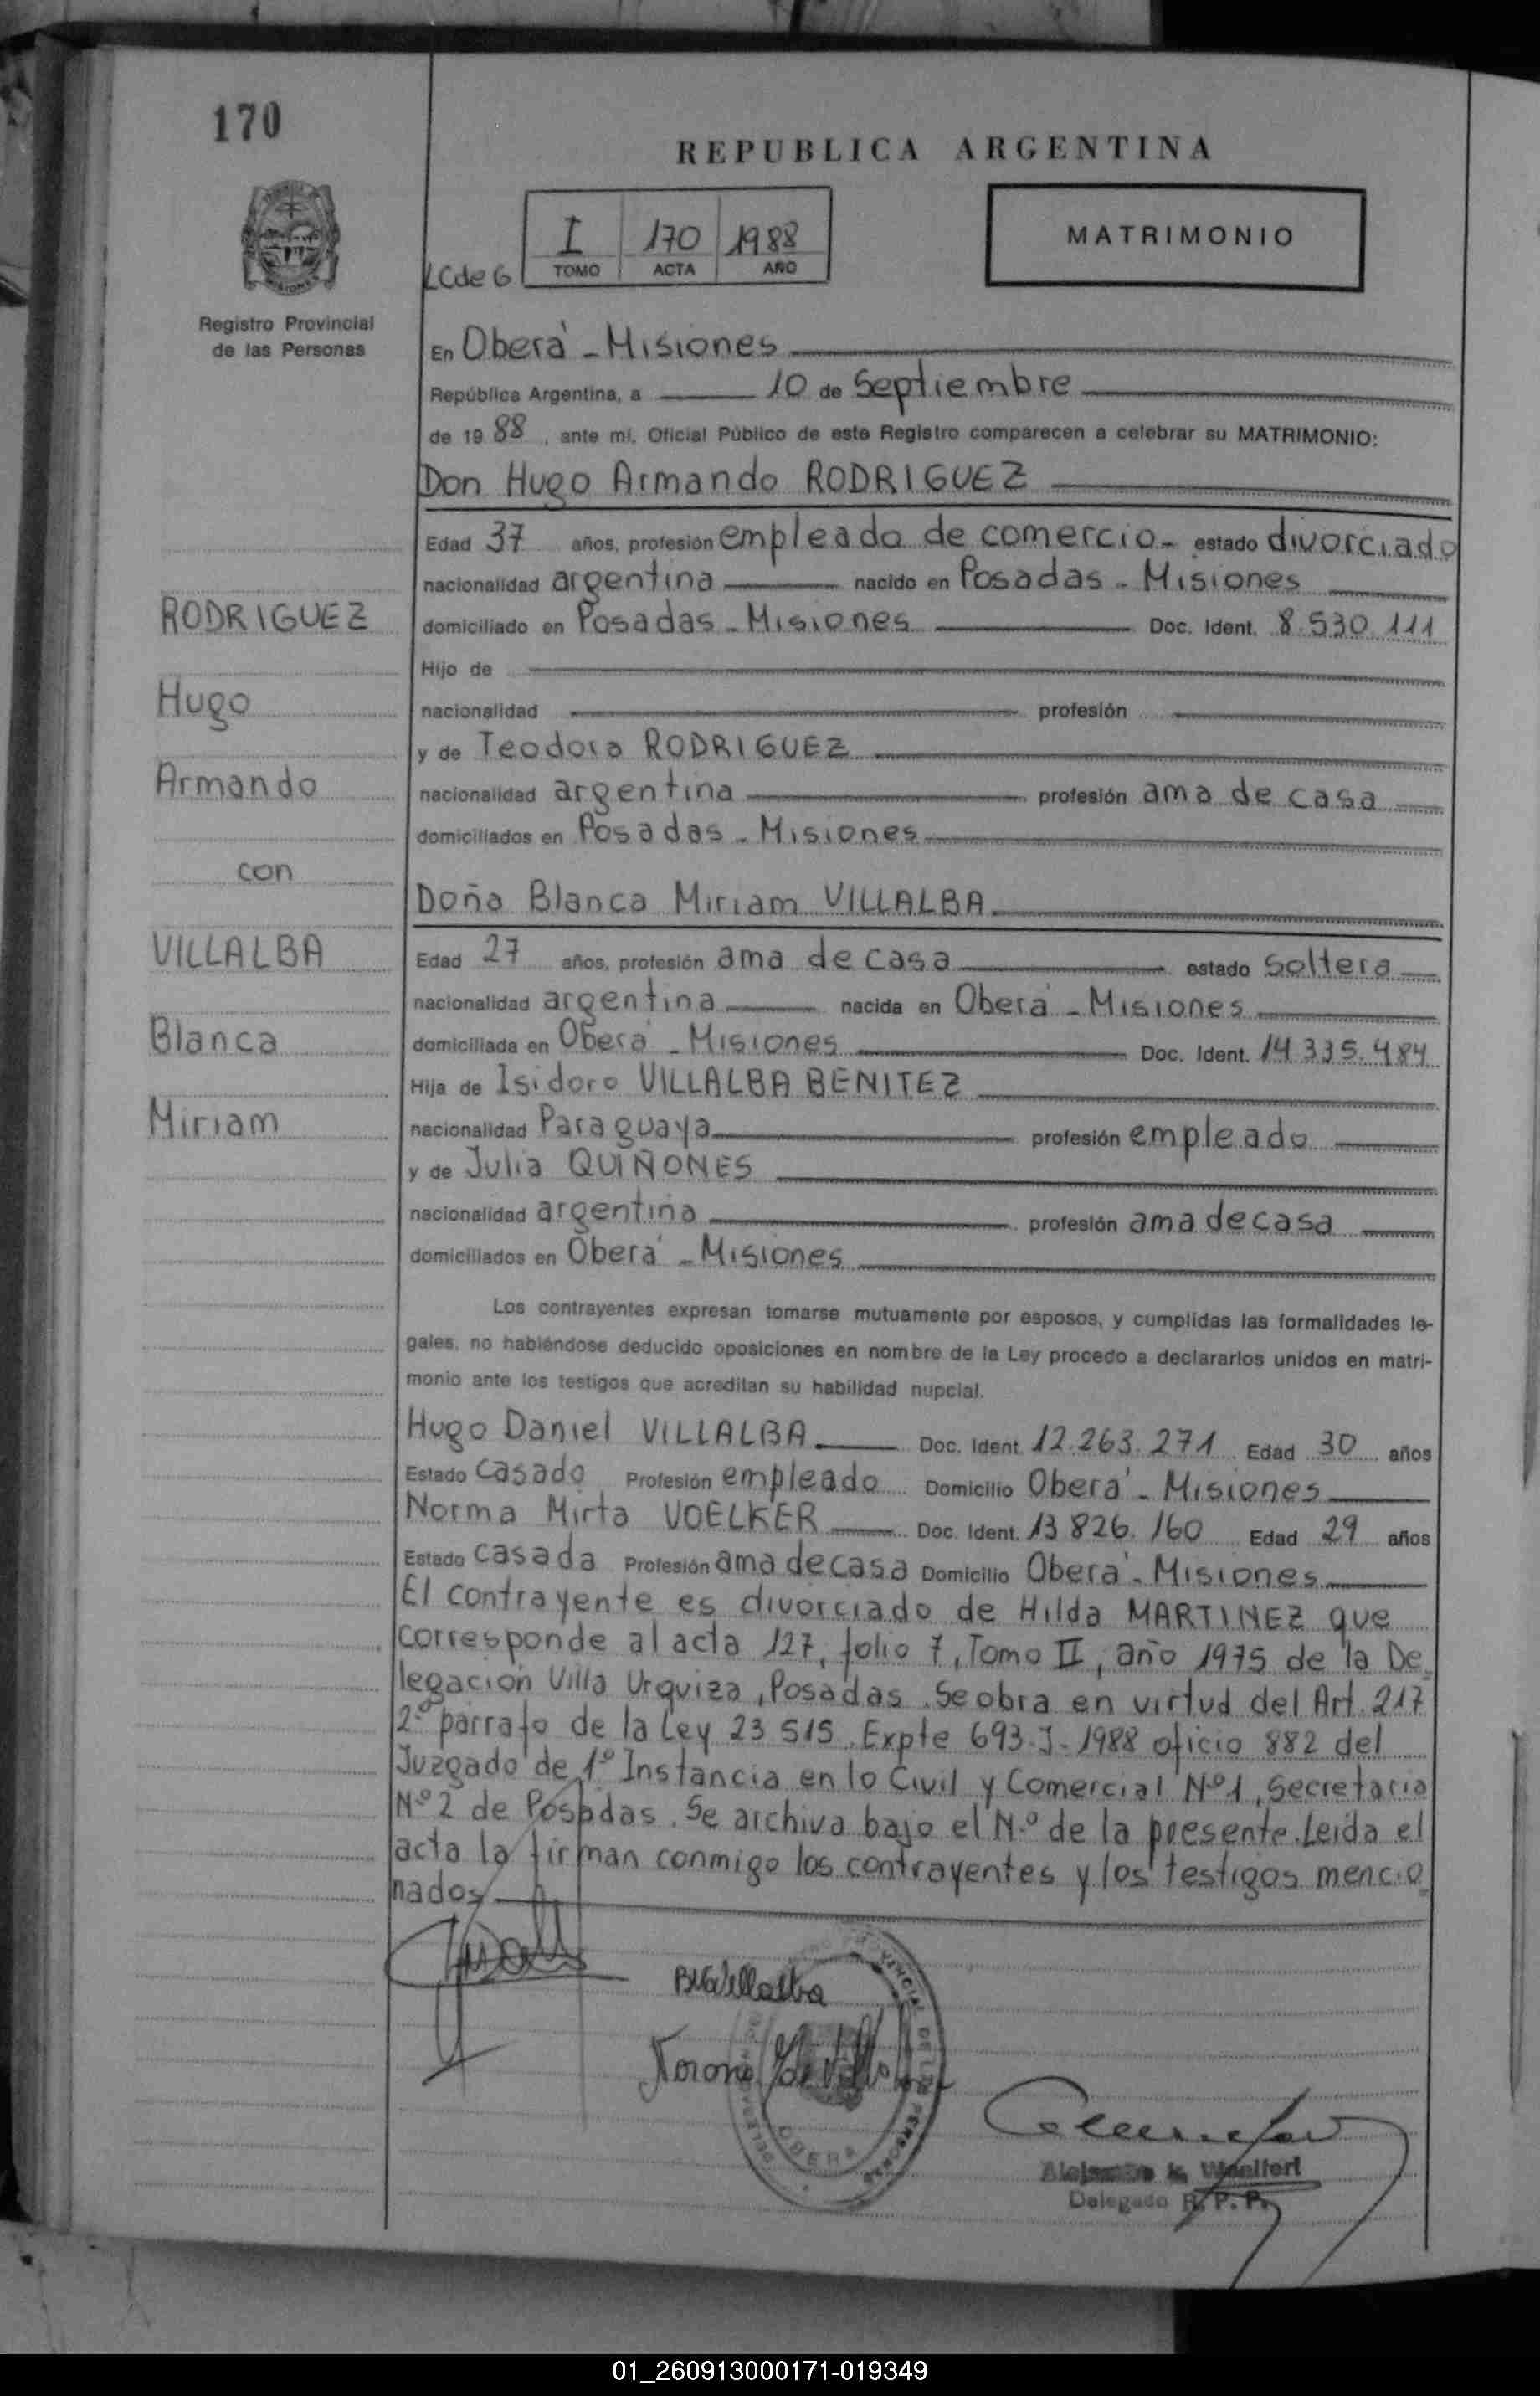 170
REPUBLICA ARGENTINA
I 170 1988
TOMO ACTA AÑO
LCde G
MATRIMONIO
Registro Provincial
de las Personas
En Oberá - Misiones
República Argentina, a 10 de Septiembre
de 19 88, ante mí, Oficial Público de este Registro comparecen a celebrar su MATRIMONIO:
Don Hugo Armando RODRIGUEZ
Edad 37 años, profesión empleado de comercio - estado divorciado
nacionalidad argentina nacido en Posadas - Misiones
RODRIGUEZ
domiciliado en Posadas - Misiones Doc. Ident. 8.530.111
Hijo de
Hugo
nacionalidad profesión
y de Teodora RODRIGUEZ
Armando
nacionalidad argentina profesión ama de casa
domiciliados en Posadas - Misiones
con
Doña Blanca Miriam VILLALBA
VILLALBA
Edad 27 años, profesión ama de casa estado Soltera
nacionalidad argentina nacida en Oberá - Misiones
Blanca
domiciliada en Oberá - Misiones Doc. Ident. 14.335.484
Hija de Isidoro VILLALBA BENITEZ
Miriam
nacionalidad Paraguaya profesión empleado
y de Julia QUIÑONES
nacionalidad argentina profesión ama de casa
domiciliados en Oberá - Misiones
Los contrayentes expresan tomarse mutuamente por esposos, y cumplidas las formalidades le-
gales, no habiéndose deducido oposiciones en nombre de la Ley procedo a declararlos unidos en matri-
monio ante los testigos que acreditan su habilidad nupcial.
Hugo Daniel VILLALBA Doc. Ident. 12.263.271 Edad 30 años
Estado Casado Profesión empleado Domicilio Oberá - Misiones
Norma Mirta VOELKER Doc. Ident. 13 826.160 Edad 29 años
Estado Casada Profesión ama de casa Domicilio Oberá - Misiones
El contrayente es divorciado de Hilda MARTINEZ que
corresponde al acta 127, folio 7, Tomo II, año 1975 de la De
legación Villa Urquiza, Posadas. Se obra en virtud del Art. 217
2º parrafo de la Ley 23 515. Expte 693-J-1988 oficio 882 del
Juzgado de 1º Instancia en lo Civil y Comercial Nº1, Secretaria
Nº 2 de Posadas. Se archiva bajo el N.º de la presente. Leida el
acta la firman conmigo los contrayentes y los testigos mencio
nados
BMVillalba
OBERA
Delegado R. P. P.
01_260913000171-019349